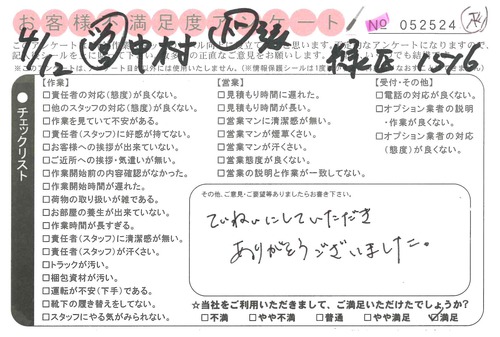 お客様不満足度アンケート
No 052524
4/12
中村
緑区 1516
【作業】
□責任者の対応(態度)が良くない。
□他のスタッフの対応(態度)が良くない。
□作業を見ていて不安がある。
□責任者(スタッフ)に好感が持てない。
□お客様への挨拶が出来ていない。
□ご近所への挨拶・気遣いが無い。
□作業開始前の内容確認がなかった。
□作業開始時間が遅れた。
□荷物の取り扱いが雑である。
□お部屋の養生が出来ていない。
□作業時間が長すぎる。
□責任者(スタッフ)に清潔感が無い。
□責任者(スタッフ)が汗くさい。
□トラックが汚い。
□梱包資材が汚い。
□運転が不安(下手)である。
□靴下の履き替えをしてない。
□スタッフにやる気がみられない。
【営業】
□見積もり時間に遅れた。
□見積もり時間が長い。
□営業マンに清潔感が無い。
□営業マンが煙草くさい。
□営業マンが汗くさい。
□営業態度が良くない。
□営業の説明と作業が一致してない。
【受付・その他】
□電話の対応が良くない。
□オプション業者の説明
・作業が良くない。
□オプション業者の対応
(態度)が良くない。
チェックリスト
その他、ご意見・ご要望等ありましたらお書き下さい。
ていねいにしていただき
ありがとうございました。
☆当社をご利用いただきまして、ご満足いただけたでしょうか?
□不満 □やや不満 □普通 □やや満足 ☑満足